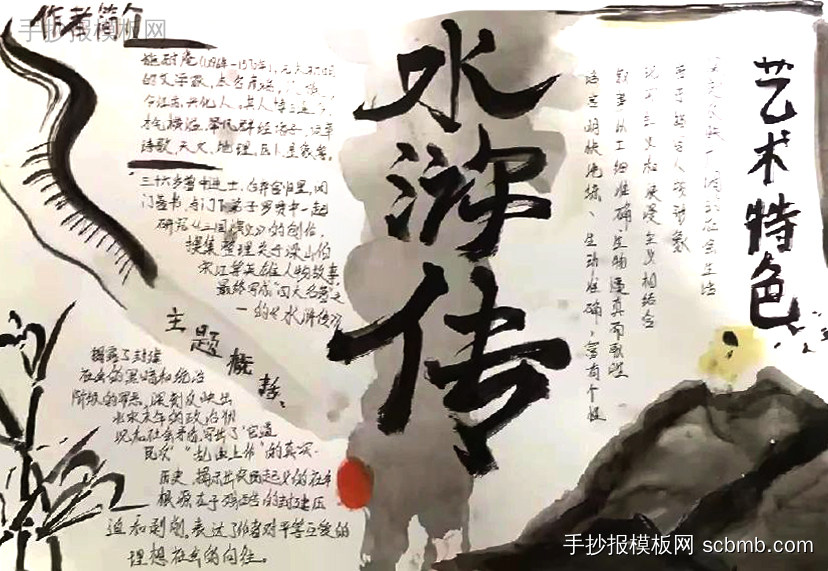 作者简介
手抄报模板网
施耐庵(1296年-1370年),元末明初
的文学家,本名彦端,
今江苏兴化人。其人博古通今,
才气横溢,举凡群经诸子,词章
诗歌,天文、地理、医卜、星象等。
三十六岁曾中进士,后弃官归里,闭
门著书,与门下弟子罗贯中一起
研究《三国演义》的创作,
搜集整理关于梁山伯
宋江等英雄人物故事,
最终写成“四大名著”之
一的《水浒传》
主题概括、
揭露了封建
社会的黑暗和统治
阶级的罪恶,深刻反映出
北宋末年的政治状
况和社会矛盾,写出了“官逼
民反”“乱由上作”的真实
历史,揭示出农民起义的社会
根源在于残酷的封建压
迫和剥削,表达了作者对平等互爱的
理想社会的向往。
水浒传
艺术特色
广阔的社会生活
众多的人物形象
现实主义和浪漫主义相结合
叙事细准确、生物逼真而
语言明快洗练、生动准确、富有个性
手抄报模板网 scbmb.com